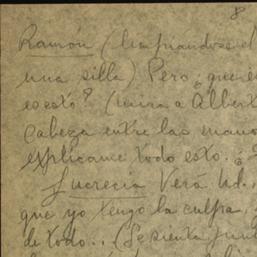 8
Ramón (
una silla) Pero ¿que e
es esto? (mira a Albert
cabeza entre las mano
explicame todo esto. ¿
Lucrecia Verá Ud.,
que yo tengo la culpa,
de todo.. (Se sienta junt